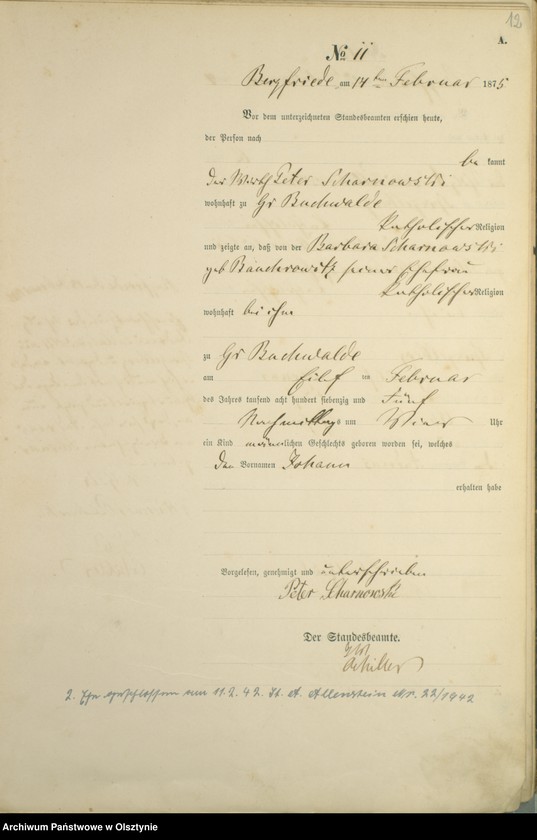 12
A.
№ 11
Bergfriede am 14ten Februar 1875
Vor dem unterzeichneten Standesbeamten erschien heute,
der Person nach
be kannt
der Wirth Peter Scharnowski
wohnhaft zu Gr Buchwalde
katholischer Religion
und zeigte an, daß von der Barbara Scharnowski
geb seiner Ehefrau
katholischer Religion
wohnhaft bei ihm
zu Gr Buchwalde
am Eilf ten Februar
des Jahres tausend acht hundert siebenzig und Fünf
Nachmittags um Uhr
ein Kind männlichen Geschlechts geboren worden sei, welches
den Vornamen Johann
erhalten habe
Vorgelesen, genehmigt und unterschrieben
Peter Scharnowski
Der Standesbeamte.
Schiller
2. Ehe geschlossen am 11.2.42. St. A. Allenstein Nr. 22/1942
Archiwum Państwowe w Olsztynie